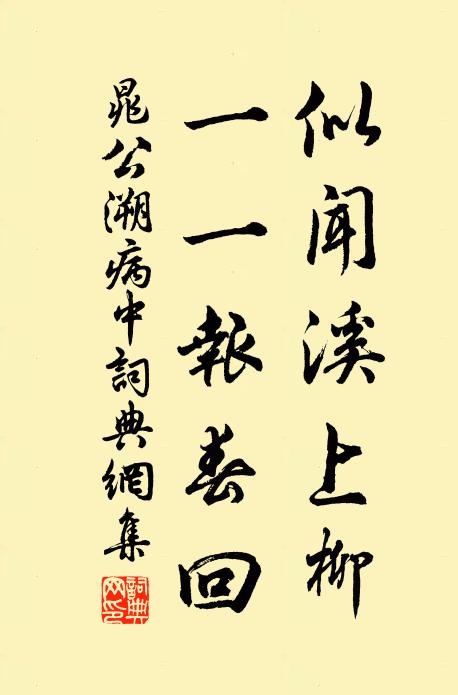 似聞溪上柳
一一報春回
晁公溯病中詞典網集
詞典網印